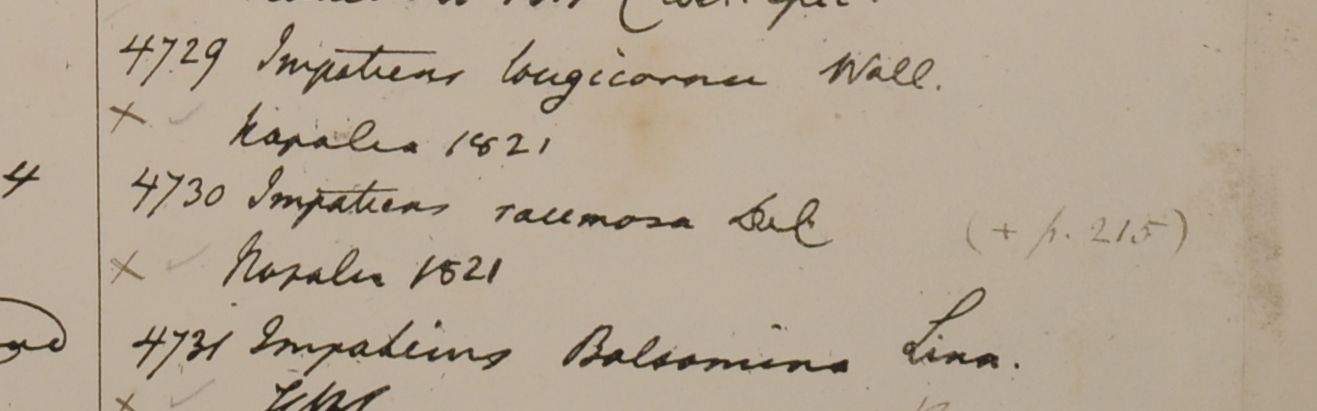 4729 Impatiens longicornu Wall.
× Napalia 1821
4
4730 Impatiens racemosa DeC
(+ p. 215)
× Napalia 1821
4731 Impatiens Balsamina Linn.
×